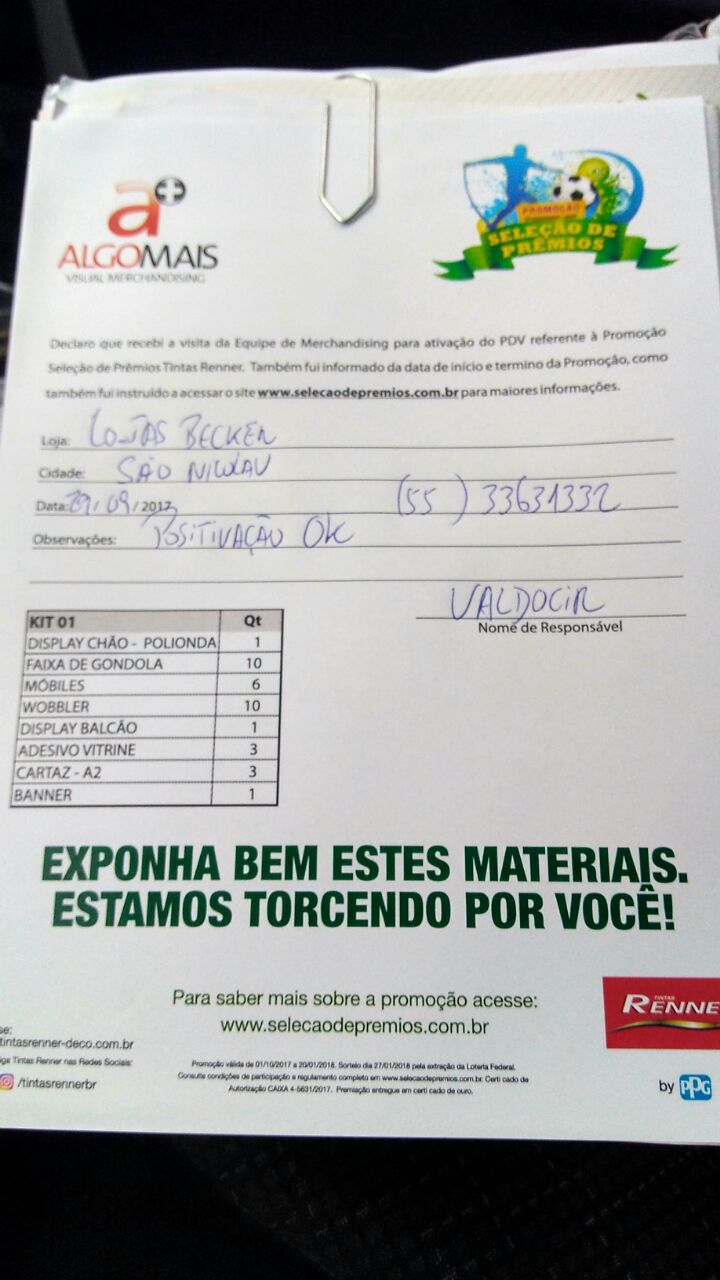 a+
ALGOMAIS
VISUAL MERCHANDISING
PROMOÇÃO
SELEÇÃO DE
PRÊMIOS
Declaro que recebi a visita da Equipe de Merchandising para ativação do PDV referente à Promoção
Seleção de Prêmios Tintas Renner. Também fui informado da data de início e termino da Promoção, como
também fui instruído a acessar o site www.selecaodepremios.com.br para maiores informações.
Loja: LOJAS BECKER
Cidade: SÃO NICOLAU
Data: 29/09/2017 (55) 33631332
Observações: POSITIVAÇÃO OK
VALDOCIR
Nome de Responsável
KIT 01 Qt
DISPLAY CHÃO - POLIONDA 1
FAIXA DE GONDOLA 10
MÓBILES 6
WOBBLER 10
DISPLAY BALCÃO 1
ADESIVO VITRINE 3
CARTAZ - A2 3
BANNER 1
EXPONHA BEM ESTES MATERIAIS.
ESTAMOS TORCENDO POR VOCÊ!
Para saber mais sobre a promoção acesse:
www.selecaodepremios.com.br
TINTAS
RENNE
se:
tintasrenner-deco.com.br
iga Tintas Renner nas Redes Sociais:
/tintasrennerbr
Promoção válida de 01/10/2017 a 20/01/2018. Sorteio dia 27/01/2018 pela extração da Loteria Federal.
Consulte condições de participação e regulamento completo em www.selecaodepremios.com.br. Certi cado de
Autorização CAIXA 4-5631/2017. Premiação entregue em certi cado de ouro.
by PPG